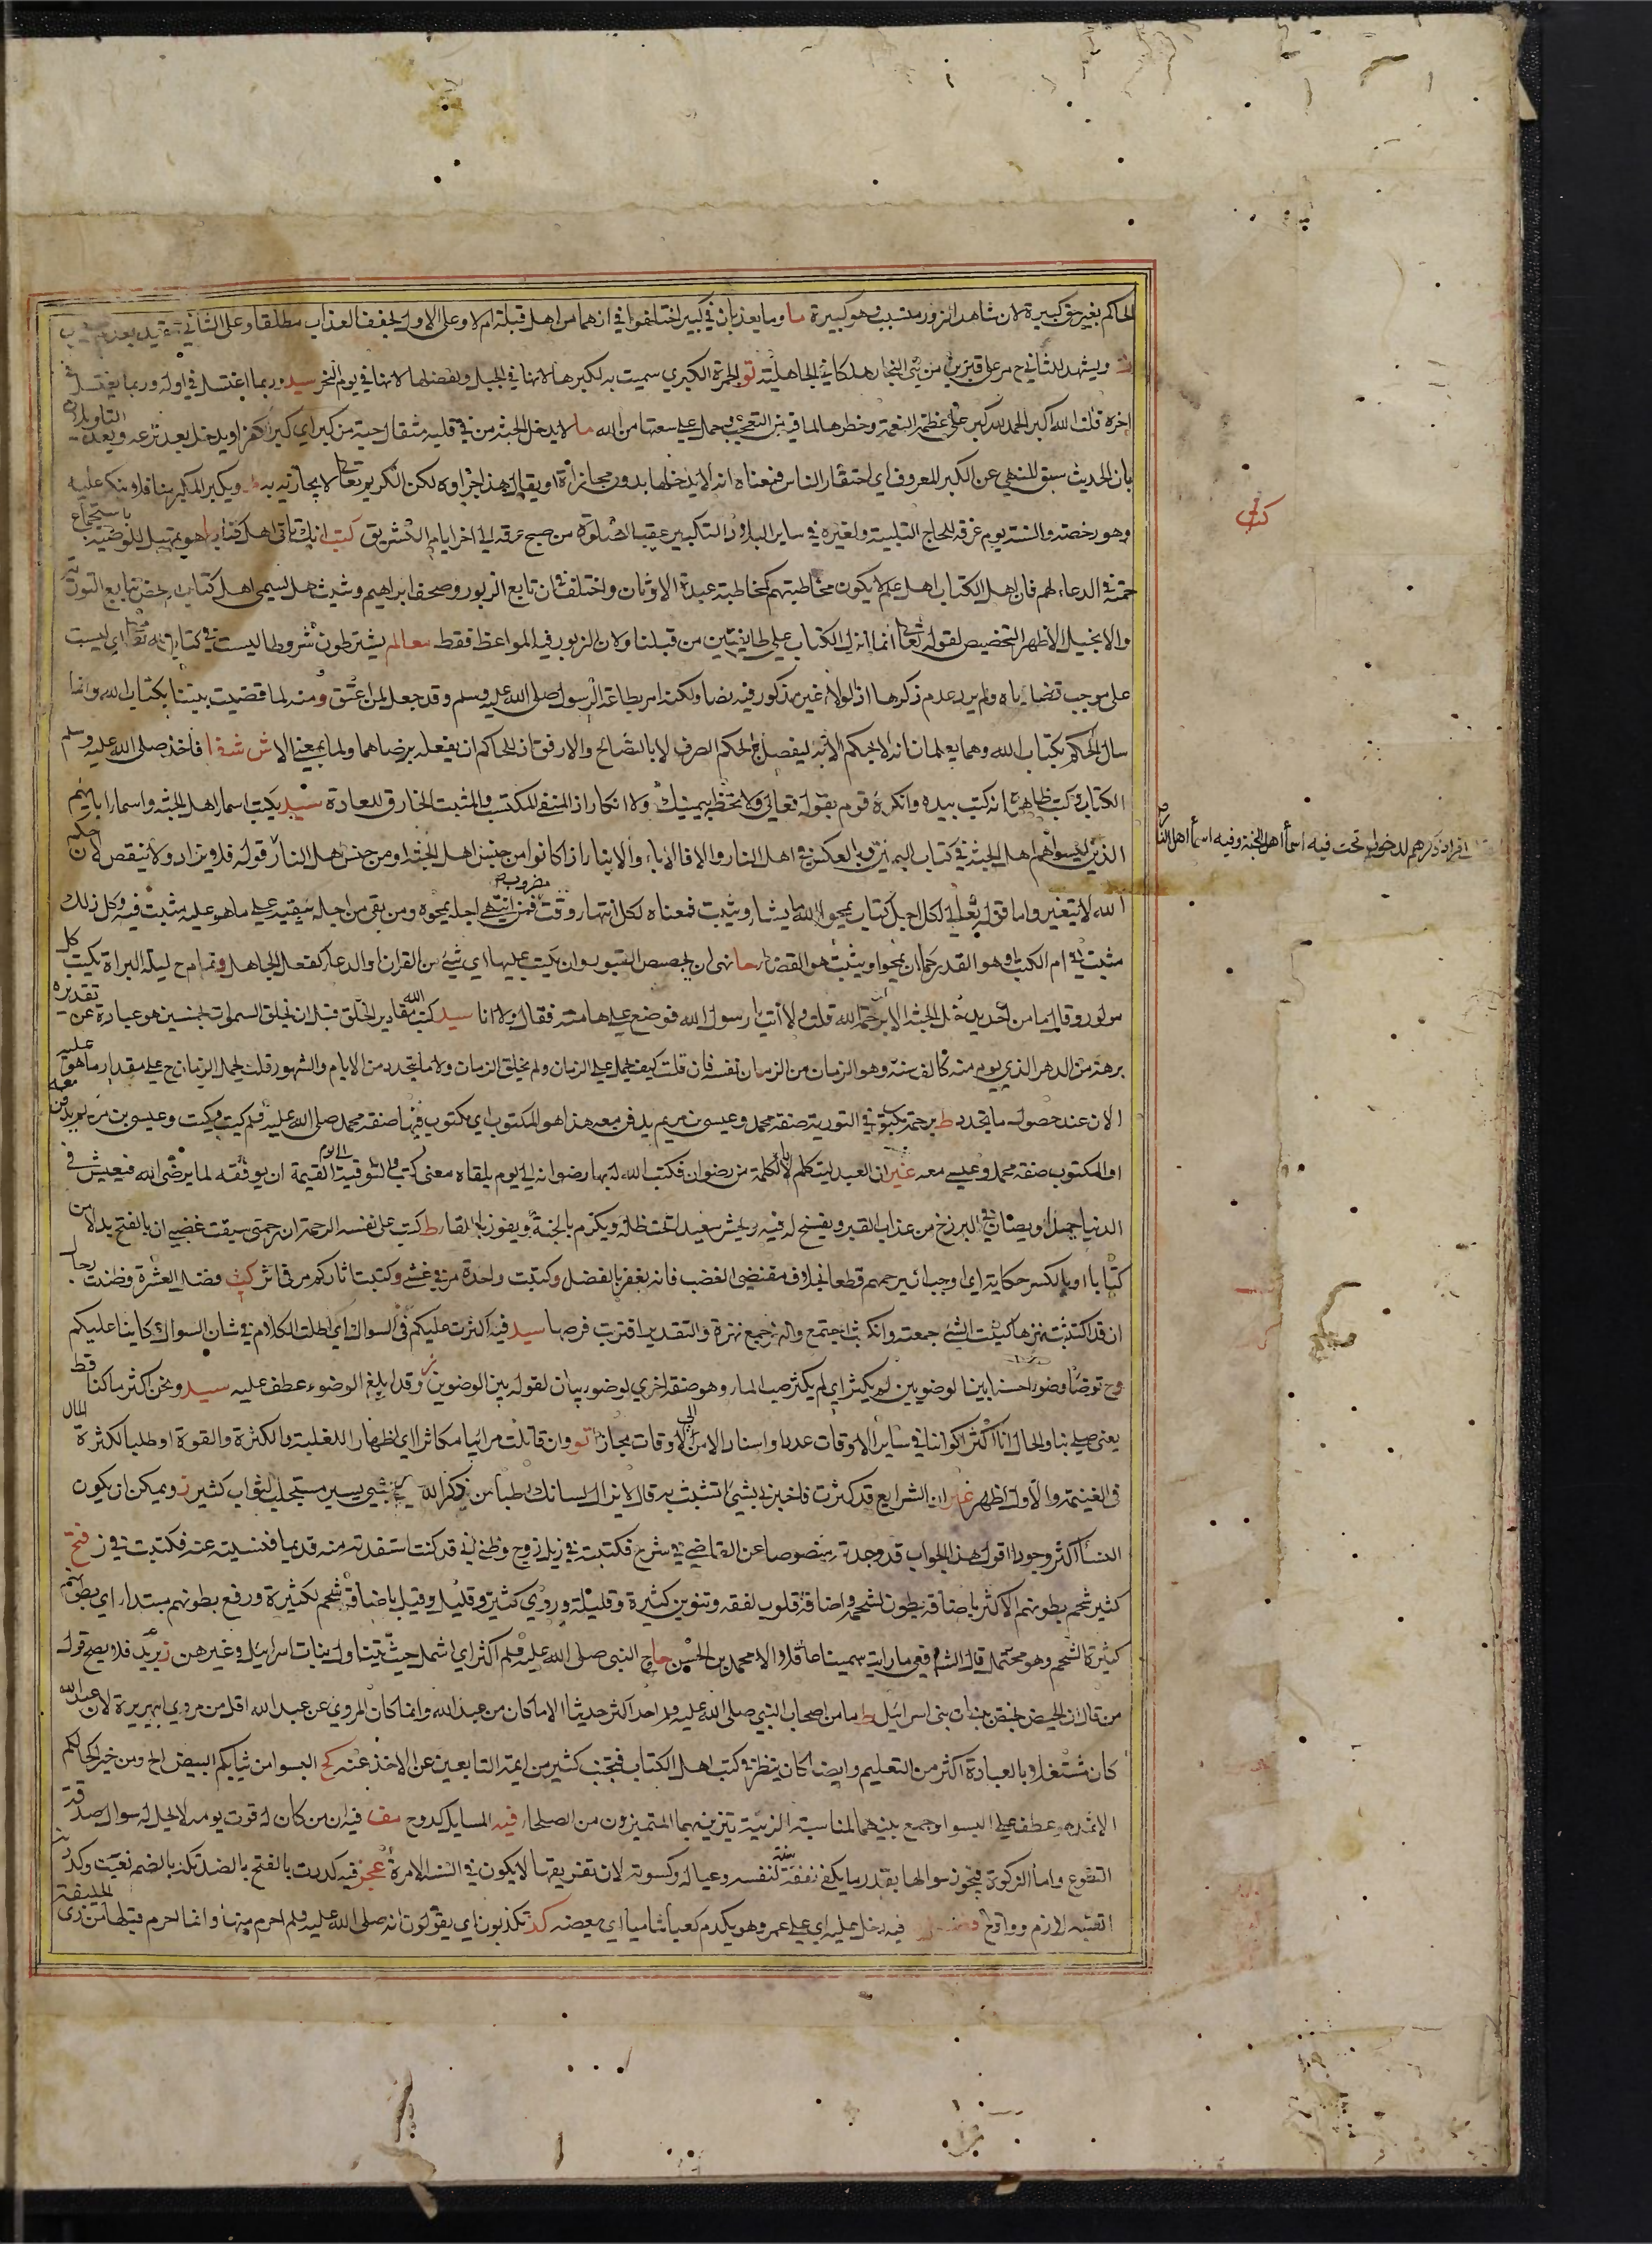 الحاكم بغير حق كبيرة لان شاهد الزور متسبب وهو كبيرة ما وما يعذبان في كبير اختلفوا في انهما من اهل قبلة ام لا وعلى الاول يخفف العذاب مطلقا وعلى الثاني
ويشهد للثاني ح مر على قبرين من بني النجار هلكا في الجاهلية تو الجمرة الكبرى سميت به لكبرها لانها في الجبل وبفضلها لانها في يوم النحر سيد وربما اغتسل في اوله وربما يغتسل في
اخره قلت الله اكبر الحمد لله كبر على عظمة النعمة وخطرها لما فيه من التعجب وحمل على سعتها من الله ما لا يدخل الجنة من في قلبه مثقال حبة من كبر اي كبر الكفر او يدخل بعد نزعه ويعد التاويلان
بان الحديث سبق للنهي عن الكبر المعروف اي احتقار الناس فمعناه انه لا يدخلها بدون مجازاة او يقال هذا جزاوه لكن الكريم تعالى لا يجازيه به ط ويكبر المكبر منا فلا ينكر عليه
وهو رخصة والسنة يوم عرفة للحاج التلبية ولغيره في ساير البلاد التكبير عقب الصلوة من صبح عرفة الى اخر ايام التشريق كتب انك تاتي اهل كتاب هو تمهيد للوصية باستجماع
همته في الدعاء لهم فان اهل الكتاب اهل علم لا يكون مخاطبتهم كمخاطبة عبدة الاوثان واختلف في ان تابع الزبور وصحف ابراهيم وشيث هل يسمى اهل كتاب او يخص بتابع التورية
والانجيل والاظهر التخصيص لقوله تعالى انما انزل الكتاب على طايفتين من قبلنا ولان الزبور فيه المواعظ فقط معالم يشترطون شروطا ليست في كتاب الله تعالى اي ليست
على موجب قضاياه ولم يرد عدم ذكرها اذ الولاء غير مذكور فيه نصا ولكنه امر بطاعة الرسول صلى الله عليه وسلم وقد جعل لمن اعتق ومنه لما قضيت بيننا بكتاب الله وانما
سال الحكم بكتاب الله وهما يعلمان انه لا يحكم الا به ليفصل بالحكم الصرف لا بالتصالح والارفق اذ للحاكم ان يفعله برضاهما ولما بمعنى الا ش شفا فاخذ صلى الله عليه وسلم
الكتاب وكتب ظاهره انه كتب بيده وانكره قوم بقوله تعالى ولا تخطه بيمينك ولا انكار اذ المنفي المكتسب والمثبت الخارق للعادة سيد يكتب اسماء اهل الجنة واسماء ابائهم
الذين ليسوا هم اهل الجنة في كتاب اليمين وبالعكس في اهل النار والا فالاباء والابناء اذا كانوا من جنس اهل الجنة او من جنس اهل النار قوله فلا يزاد ولا ينقص لان حكم
الله لا يتغير واما قوله تعالى لكل اجل كتاب يمحو الله ما يشاء ويثبت فمعناه لكل انتهاء وقت مضروب فمن انتهى اجله يمحوه ومن بقي من اجله يبقيه على ما هو عليه مثبت فيه وكل ذلك
مثبت في ام الكتاب وهو القدر كما ان يمحو او يثبت هو القضاء حا نهى ان يجصص القبور وان يكتب عليها اي شيء من القران والدعاء كفعل الجاهل وتمام ح ليلة البراة يكتب كل
مولود وقالها ما من احد يدخل الجنة الا برحمة الله قلت ولا انت يا رسول الله فوضع على هامته فقال ولا انا سيد كتب الله مقادير الخلق قبل ان يخلق السموات بخمسين هو عبارة عن تقديره
برهة من الدهر الذي يوم منه كالف سنة وهو الزمان من الزمان نفسه فان قلت كيف يحمل على الزمان ولم يخلق الزمان ولا ما يتحدد من الايام والشهور قلت يحمل الزمان ح على مقدار ما هو عليه
الان عند حصول ما يتحدد ط يرحمه مكتوب في التورية صفة محمد وعيسى بن مريم يدفن معه هذا هو المكتوب اي مكتوب فيها صفة محمد صلى الله عليه وسلم كيت وكيت وعيسى بن مريم يدفن معه
او المكتوب صفة محمد وعيسى معه غير ان العبد ليتكلم بالكلمة من رضوان فكتب الله له بها رضوانه الى يوم يلقاه معنى كتب والتوقيت الى يوم القيمة ان يوفقه لما يرضى الله فيعيش في
الدنيا حميدا ويصان في البرزخ من عذاب القبر ويفسح له فيه ويحشر سعيدا تحت ظله ويكرم بالجنة ويفوز باللقاء ط كتب على نفسه الرحمة ان رحمتي سبقت غضبي ان بالفتح بدلا من
كتابا او بالكسر حكاية اي اوجب ان يرحمهم قطعا بخلاف مقتضى الغضب فانه يغفر بالفضل وكتبت واحدة مر في غشي وكتبت اثاركم مر في اثر كث وفضل العشرة وظننت رجا
ان قد اكتثبت نزها كثبت الشئ جمعته وانكثب اجتمع والنز جمع نزة والتقدير اقترب فرصها سيد فيه اكثرت عليكم في السواك اي اطلت الكلام في شان السواك كاينا عليكم
وح توضا وضوءا حسنا بينا لوضويين لم يكثر اي لم يكثر صب الماء وهو صفة اخرى لوضوء بيان لقوله بين الوضوين وقد ابلغ الوضوء عطف عليه سيد ونحن اكثر ما كنا قط
يعني صلى بنا والحال انا اكثر اكواننا في ساير الاوقات عددا واسناد الامن الى الاوقات مجاز تو وان قاتلت مرائيا مكاثرا اي اظهار اللغلبة والكثرة والقوة او طلبا لكثرة المال
في الغنيمة والاول اظهر غير ان الشرايع قد كثرت فاخبرني بشئ اتشبث به قال لا يزال لسانك رطبا من ذكر الله اي بشئ يسير مستجلب لثواب كثير ز ويمكن ان يكون
النسا اكثر وجودا اقول هذا الجواب قد وجدته منصوصا عن القاضي في شرح فكتبته في ذيل زوج وظني اني قد كنت استفدته منه قديما فنسيته عنه فكتبت في ز فتح
كثير شحم بطونهم الاكثر باضافة بطون لشحم واضافة قلوب لفقه وتنوين كثيرة وقليلة وروي كثير وقليل وقيل باضافة شحم لكثيرة ورفع بطونهم مبتداء اي بطونهم
كثيرة الشحم وهو محتمل قال الشافعي ما رايت سمينا عاقلا الا محمد بن الحسن حاج النبي صلى الله عليه وسلم اكثر اي اشمل حيث يتناول بنات اسرائيل وغيرهن ز يريد فلا يصح قول
من قال ان الحيض لم يحضن بنات بني اسرائيل ط ما من اصحاب النبي صلى الله عليه وسلم احد اكثر حديثا الا ما كان من عبد الله وانما كان المروي عن عبد الله اقل من مروي ابي هريرة لان عبد الله
كان مشتغلا بالعبادة اكثر من التعليم وايضا كان ينظر في كتب اهل الكتاب فتجنب كثير من ايمة التابعين عن الاخذ عنه كح البسوا من ثيابكم البيض الخ ومن خير اكحالكم
الاثمد هو عطف على البسوا وجمع بينهما لمناسبة الزينة يتزين بهما المتميزون من الصلحاء فيه المسايل كدوح مف فيه ان من كان له قوت يومه لا يحل له سوال صدقة
التطوع واما الزكوة فيجوز سوالها بقدر ما يكفي نفقة سنة لنفسه وعياله وكسوته لان تفريقها لا يكون في السنة الا مرة عجز فيه كدرت بالفتح بالضد تكدر بالضم نعيت وكدر
التعبه لازم وواقع فيه دخل عليه اي على عمر وهو يكدم كعبا شاميا اي يعضه كذ تكذبون اي يقولون انه صلى الله عليه وسلم احرم منها وانما احرم قبلها من ذي الحليفة
كتب
افراد ذكرهم لدخولهم تحت فيه اسما اهل الجنة وفيه اسما اهل النار